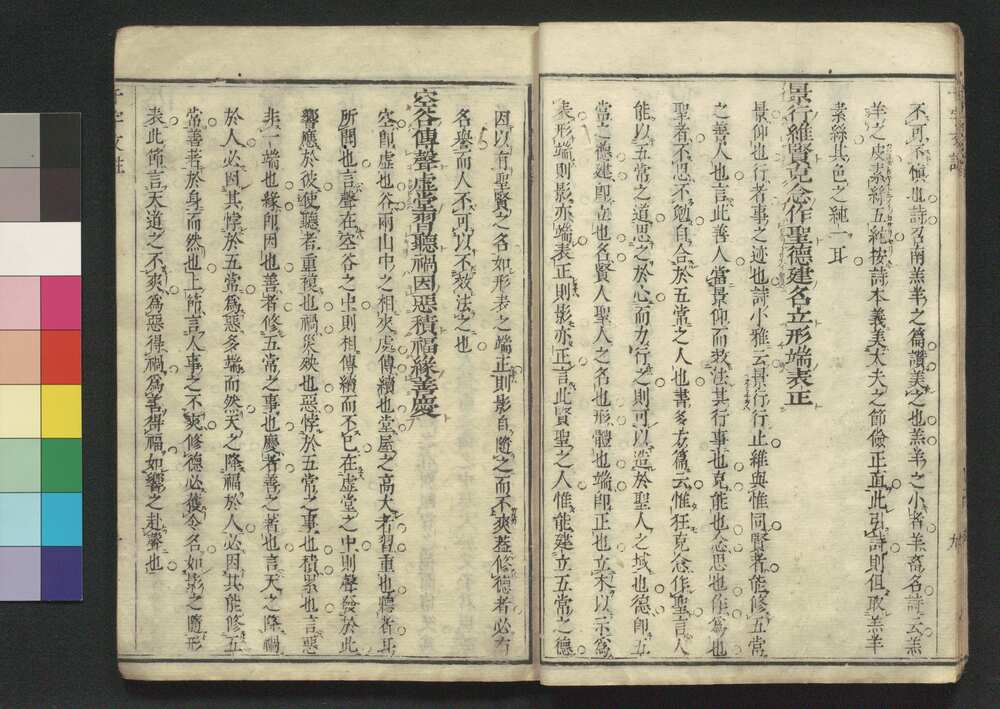 不可不愼也詩召南羔羊之篇讚美之也羔羊之小者羊畜名詩云羔
羊之皮素絲五紽按詩本義美大夫之節儉正直此引詩則但取羔羊
素絲其色之純一耳
景行維賢克念作聖德建名立形端表正
景仰也行者事之迹也詩小雅云景行行止維與惟同賢者能修五常
之善人也言此善人當景仰而效法其行事也克能也念思也作爲也
聖者不思不勉自合於五常之人也書多方篇云惟狂克念作聖言人
能以五常之道思之於心而力行之則可以造於聖人之域也德卽五
常之德建卽立也名賢人聖人之名也形體也端卽正也立木以示爲
表形端則影亦端表正則影亦正言此賢聖之人惟能建立五常之德
因以有聖賢之名如形表之端正則影自隨之而不爽蓋修德者必有
名譽而人不可以不效法之也
空谷傳聲虛堂習聽禍因惡積福緣善慶
空卽虛也谷兩山中之相夾處傳續也堂屋之高大者習重也聽者耳
所聞也言聲在空谷之中則相傳續而不已在虛堂之中則聲發於此
響應於彼使聽者重複也禍災殃也惡悖於五常之事也積累也言惡
非一端也緣卽因也善者修五常之事也慶者善之著也言天之降禍
於人必因其悖於五常爲惡多端而然天之降福於人必因其能修五
常善著於身而然也上節言人事之不爽修德必獲令名如影之隨形
表此節言天道之不爽爲惡得禍爲善得福如響之赴聲也